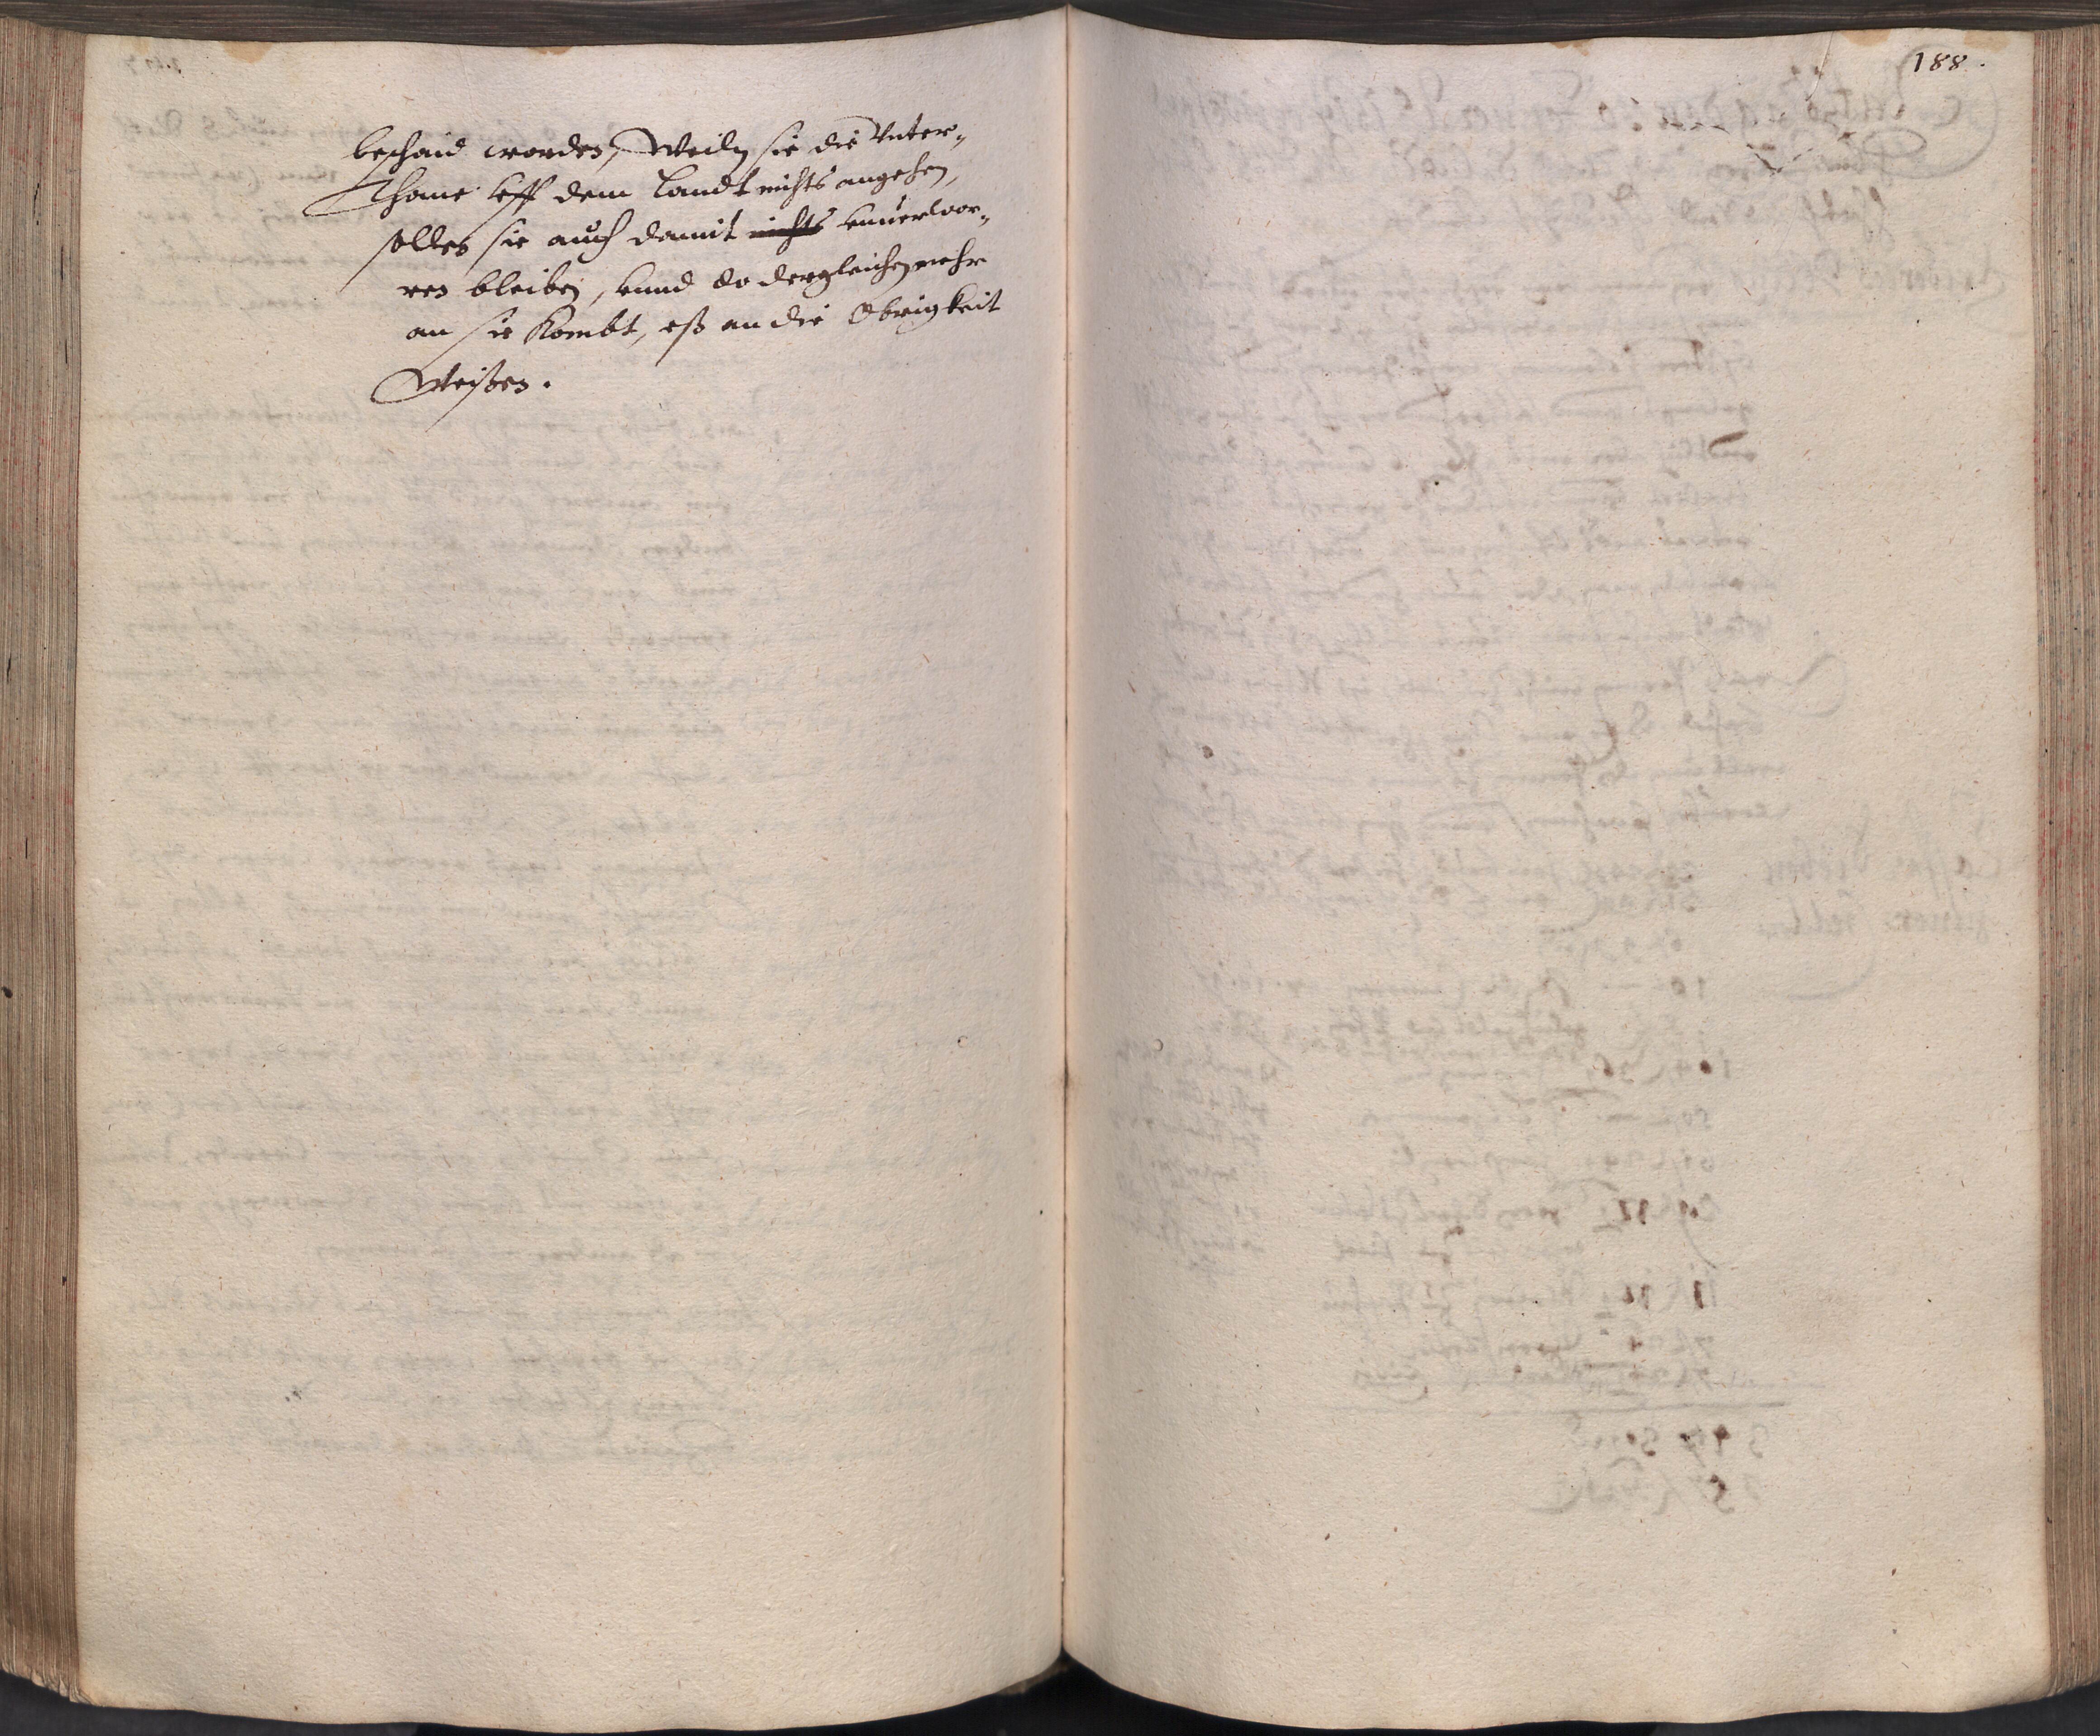 beschaid worden, Weiln sie die Vnter-
thane vff dem Landt nichts angehen,
sollen sie auch damit nichts vnuerwor-
ren bleiben, vnnd do dergleichen mehr
an sie kombt, eß an die Obrigkeit
Weißen.
188.